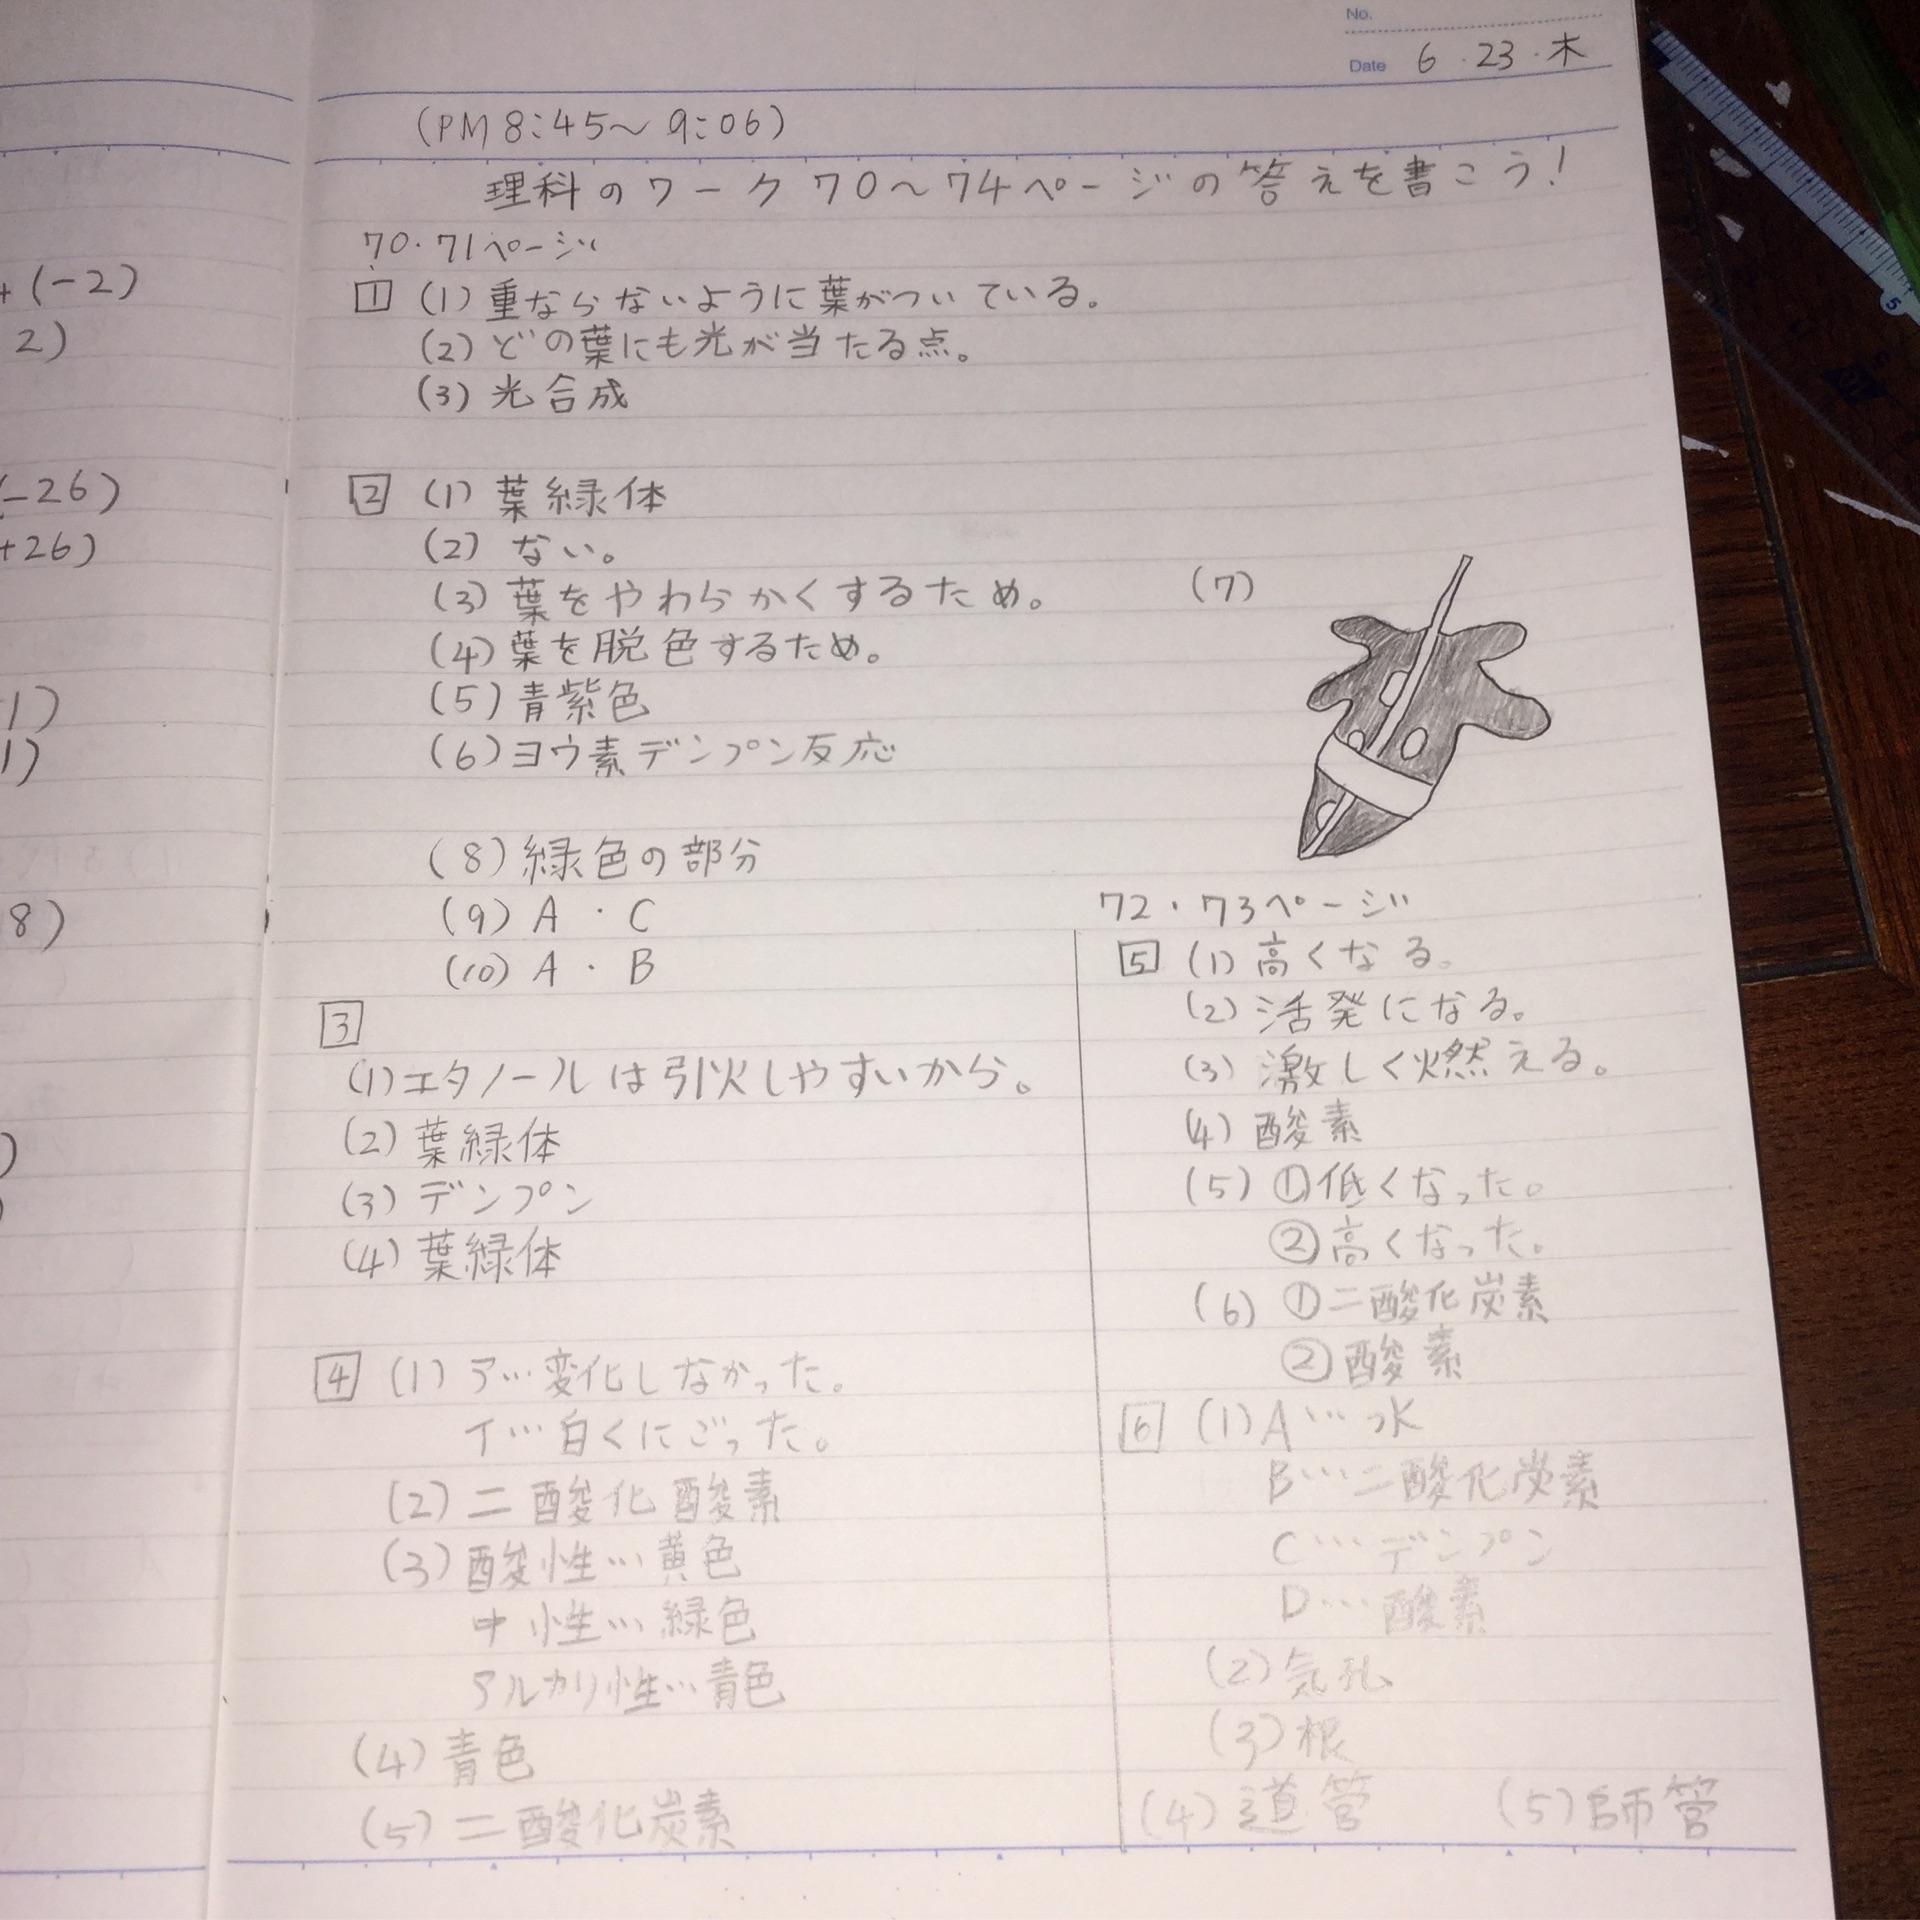 No.
Date 6・23・木
(PM 8:45～9:06)
理科のワーク70～74ページの答えを書こう!
70・71ページ
1 (1) 重ならないように葉がついている。
(2) どの葉にも光が当たる点。
(3) 光合成
2 (1) 葉緑体
(2) ない。
(3) 葉をやわらかくするため。
(4) 葉を脱色するため。
(5) 青紫色
(6) ヨウ素デンプン反応
(7)
(8) 緑色の部分
(9) A・C
(10) A・B
3
(1) エタノールは引火しやすいから。
(2) 葉緑体
(3) デンプン
(4) 葉緑体
4 (1) ア…変化しなかった。
イ…白くにごった。
(2) 二酸化酸素
(3) 酸性…黄色
中性…緑色
アルカリ性…青色
(4) 青色
(5) 二酸化炭素
72・73ページ
5 (1) 高くなる。
(2) 活発になる。
(3) 激しく燃える。
(4) 酸素
(5) ①低くなった。
②高くなった。
(6) ①二酸化炭素
②酸素
6 (1) A…水
B…二酸化炭素
C…デンプン
D…酸素
(2) 気孔
(3) 根
(4) 道管 (5) 師管
+(-2)
2)
-26)
+26)
1)
1)
8)
5